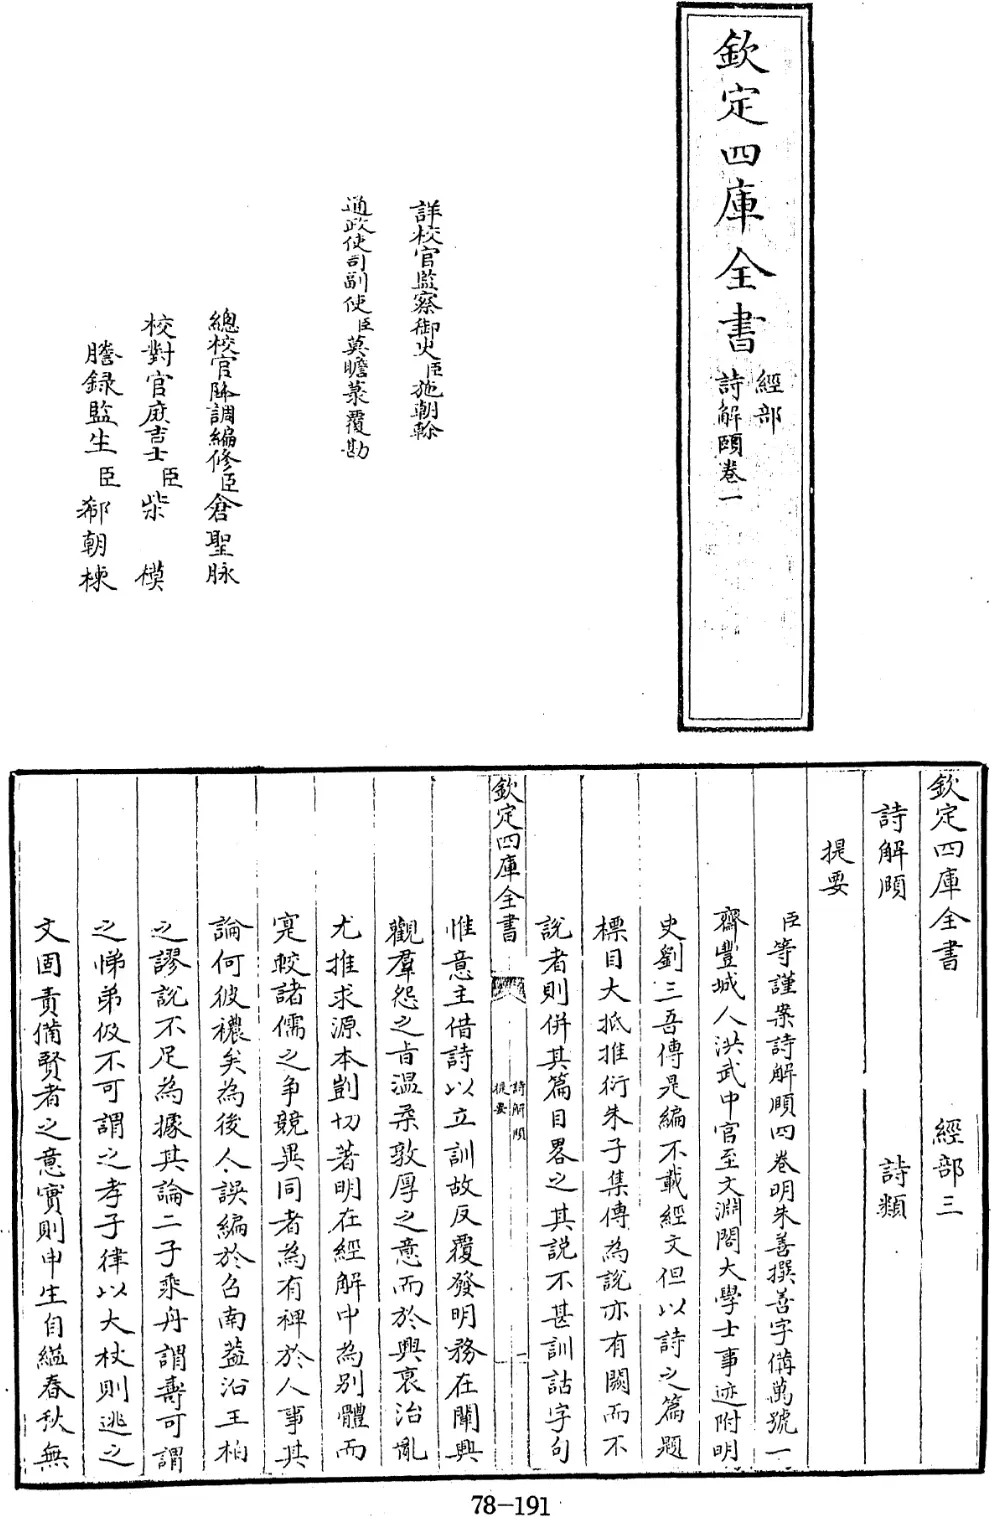 欽定四庫全書
經部
詩解頤卷一
詳校官監察御史臣施朝榦
通政使司副使臣莫瞻菉覆勘
總校官降調編修臣倉聖脉
校對官庶吉士臣柴模
謄録監生臣郗朝棟
欽定四庫全書 經部三
詩解頤 詩類
提要
臣等謹案詩解頤四卷明朱善撰善字備萬號一
齋豐城人洪武中官至文淵閣大學士事迹附明
史劉三吾傳是編不載經文但以詩之篇題
標目大抵推衍朱子集傳為説亦有闕而不
説者則併其篇目畧之其説不甚訓詁字句
欽定四庫全書
詩解頤
提要
一
惟意主借詩以立訓故反覆發明務在闡興
觀羣怨之旨温柔敦厚之意而於興衰治亂
尤推求源本剴切著明在經解中為别體而
寔較諸儒之争競異同者為有裨於人事其
論何彼穠矣為後人誤編於召南葢沿王柏
之謬説不足為據其論二子乘舟謂壽可謂
之悌弟伋不可謂之孝子律以大杖則逃之
文固責備賢者之意實則申生自縊春秋無
78-191